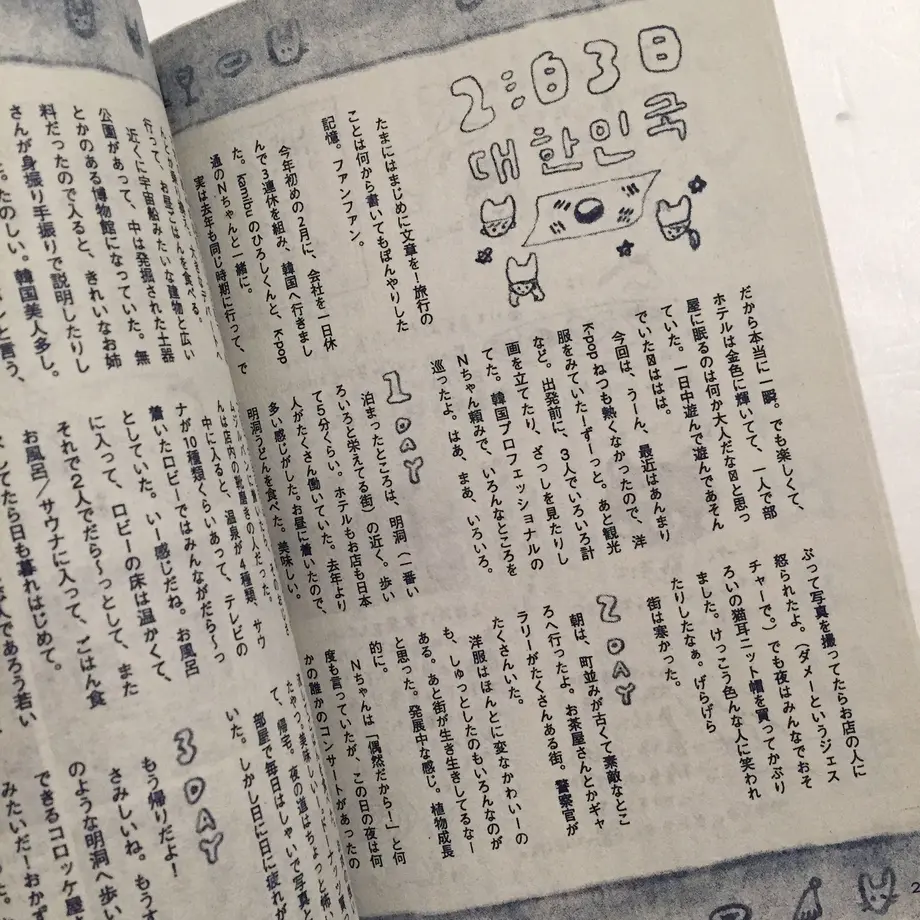 2泊3日
대한민국
たまにはまじめに文章を!旅行の
ことは何から書いてもぼんやりした
記憶。ファンファン。
今年初めの2月に、会社を一日休
んで3連休を組み、韓国へ行きまし
た。kamibuのひろしくんと、K-pop
通のNちゃんと一緒に。
実は去年も同じ時期に行って、で
だから本当に一瞬。でも楽しくて、
ホテルは金色に輝いてて、一人で部
屋に眠るのは何か大人だなと思っ
ていた。一日中遊んで遊んであそん
でいた
今回は、うーん、最近はあんまり
K-popねつも熱くなかったので、洋
服をみていたーずーっと。あと観光
など。出発前に、3人でいろいろ計
画を立てたり、ざっしを見たりし
てた。韓国プロフェッショナルの
Nちゃん頼みで、いろんなところを
巡ったよ。はあ、まあ、いろいろ。
1DAY
泊まったところは、明洞(一番い
ろいろと栄えてる街)の近く。歩い
て5分くらい。ホテルもお店も日本
人がたくさん働いていた。去年より
多い感じがした。お昼に着いたので、
明洞うどんを食べた。美味しい。
ぶって写真を撮ってたらお店の人に
怒られたよ。(ダメーというジェス
チャーで。)でも夜はみんなでおそ
ろいの猫耳ニット帽を買ってかぶり
ました。けっこう色んな人に笑われ
たりしたなぁ。げらげら
街は寒かった。
2DAY
朝は、町並みが古くて素敵なとこ
ろへ行ったよ。お茶屋さんとかギャ
ラリーがたくさんある街。警察官が
たくさんいた。
洋服はほんとに変なかわいーの
も、しゅっとしたのもいろんなのが
ある。あと街が生き生きしてるなー
と思った。発展中な感じ。植物成長
的に。
Nちゃんは「偶然だから!」と何
度も言っていたが、この日の夜は何
かの誰かのコンサートがあったの
行って、お昼ごはんを食べる。
近くに宇宙船みたいな建物と広い
公園があって、中は発掘された土器
とかのある博物館になっていた。無
料だったので入ると、きれいなお姉
さんが身振り手振りで説明したりし
たのしい。韓国美人多し。
んは店内の靴磨きの人だった。
中に入ると、温泉が4種類、サウ
ナが10種類くらいあって、テレビの
着いたロビーではみんながだら～っ
としていた。いー感じだね。お風呂
に入って、ロビーの床は温かくて、
それで2人でだら～っとして、また
お風呂/サウナに入って、ごはん食
てたら日も暮れはじめて。
て、帰宅。夜の道はちょっと怖い
部屋で毎日はしゃいで写真と
いた。しかし日に日に疲れが
3DAY
もう帰りだよ!
さみしいね。もうす
のような明洞へ歩い
できるコロッケ屋と
みたいだーおかず